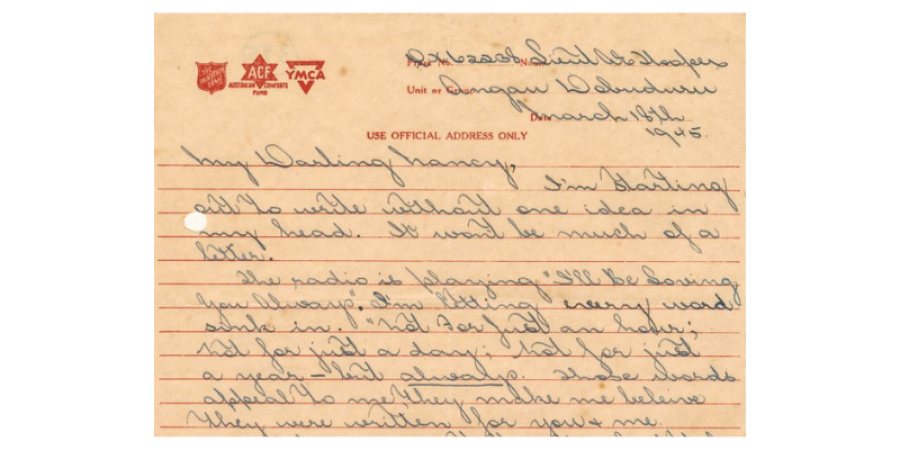 ACF
YMCA
AUSTRALIAN COMFORTS
FUND
No. Lieut
Unit or Angau Dobuduru
Date March 18th
1945.
USE OFFICIAL ADDRESS ONLY
My Darling Nancy,
I'm starting
out to write without one idea in
my head. It won't be much of a
letter.
The radio is playing "I'll Be Loving
You Always". I'm letting every word
sink in. "Not for just an hour;
not for just a day; not for just
a year – but always. Those words
appeal to me, they make me beleive
they were written for you & me.